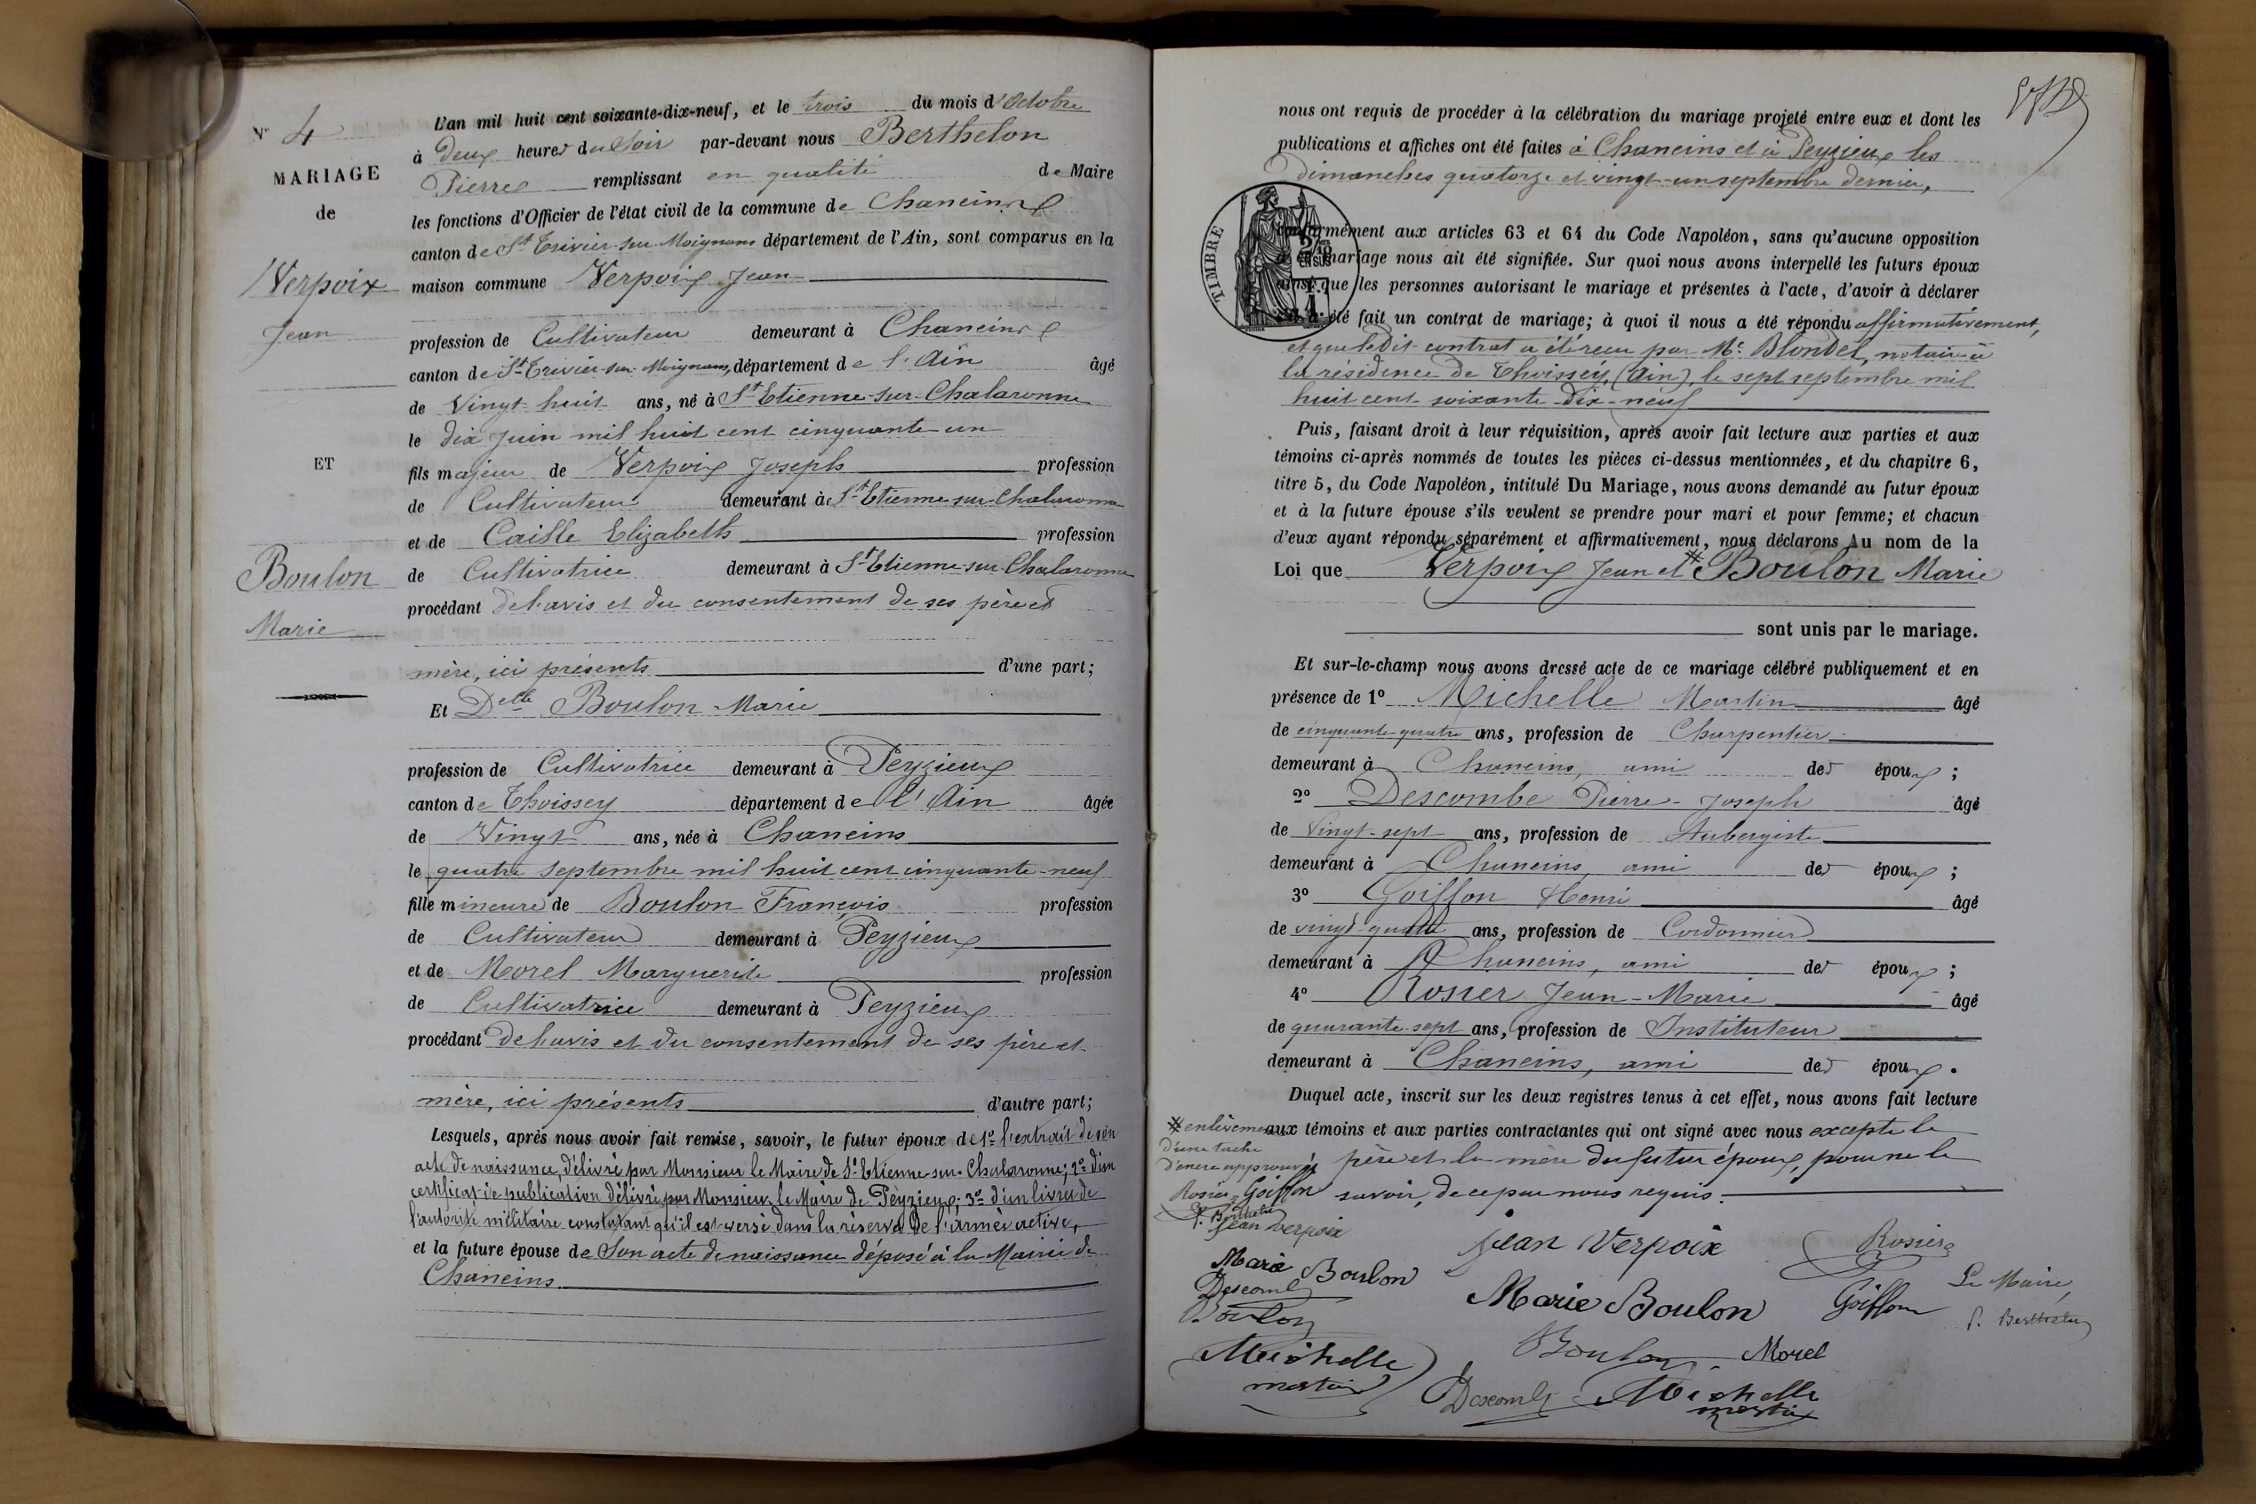 N° 4
MARIAGE
de
Verpoix
Jean
ET
Boulon
Marie
L'an mil huit cent soixante-dix-neuf, et le trois du mois d'Octobre
à deux heures du soir par-devant nous Berthelon
Pierre remplissant en qualité de Maire
les fonctions d'Officier de l'état civil de la commune de Chaneins
canton de St Trivier-sur-Moignans département de l'Ain, sont comparus en la
maison commune Verpoix Jean
profession de Cultivateur demeurant à Chaneins
canton de St Trivier-sur-Moignans, département de l'Ain âgé
de Vingt-huit ans, né à St Etienne-sur-Chalaronne
le dix juin mil huit cent cinquante-un
fils majeur de Verpoix Joseph profession
de Cultivateur demeurant à St Etienne-sur-Chalaronne
et de Caille Elizabeth profession
de Cultivatrice demeurant à St Etienne-sur-Chalaronne
procédant de l'avis et du consentement de ses père et
mère, ici présents d'une part;
Et Delle Boulon Marie
profession de Cultivatrice demeurant à Peyzieux
canton de Thoissey département de l'Ain âgée
de Vingt ans, née à Chaneins
le quatre septembre mil huit cent cinquante-neuf
fille mineure de Boulon François profession
de Cultivateur demeurant à Peyzieux
et de Morel Marguerite profession
de Cultivatrice demeurant à Peyzieux
procédant de l'avis et du consentement de ses père et
mère, ici présents d'autre part;
Lesquels, après nous avoir fait remise, savoir, le futur époux de 1° l'extrait de son
acte de naissance, délivré par Monsieur le Maire de St Etienne-sur-Chalaronne; 2° d'un
certificat de publication délivré par Monsieur le Maire de Peyzieux; 3° d'un livret de
l'autorité militaire constatant qu'il est versé dans la réserve de l'armée active,
et la future épouse de Son acte de naissance déposé à la Mairie de
Chaneins
nous ont requis de procéder à la célébration du mariage projeté entre eux et dont les
publications et affiches ont été faites à Chaneins et à Peyzieux les
dimanches quatorze et vingt-un septembre dernier,
TIMBRE
conformément aux articles 63 et 64 du Code Napoléon, sans qu'aucune opposition
à ce mariage nous ait été signifiée. Sur quoi nous avons interpellé les futurs époux
ainsi que les personnes autorisant le mariage et présentes à l'acte, d'avoir à déclarer
s'il a été fait un contrat de mariage; à quoi il nous a été répondu affirmativement,
et que ledit contrat a été reçu par Me Blondel, notaire à
la résidence de Thoissey, (Ain), le sept septembre mil
huit cent soixante-dix-neuf
Puis, faisant droit à leur réquisition, après avoir fait lecture aux parties et aux
témoins ci-après nommés de toutes les pièces ci-dessus mentionnées, et du chapitre 6,
titre 5, du Code Napoléon, intitulé Du Mariage, nous avons demandé au futur époux
et à la future épouse s'ils veulent se prendre pour mari et pour femme; et chacun
d'eux ayant répondu séparément et affirmativement, nous déclarons Au nom de la
Loi que Verpoix Jean et Boulon Marie
sont unis par le mariage.
Et sur-le-champ nous avons dressé acte de ce mariage célébré publiquement et en
présence de 1° Michelle Martin âgé
de cinquante-quatre ans, profession de Charpentier
demeurant à Chaneins, ami des époux;
2° Descombe Pierre-Joseph âgé
de Vingt-sept ans, profession de Aubergiste
demeurant à Chaneins, ami des époux;
3° Goiffon Henri âgé
de vingt-quatre ans, profession de Cordonnier
demeurant à Chaneins, ami des époux;
4° Rosier Jean-Marie âgé
de quarante-sept ans, profession de Instituteur
demeurant à Chaneins, ami des époux.
Duquel acte, inscrit sur les deux registres tenus à cet effet, nous avons fait lecture
aux témoins et aux parties contractantes qui ont signé avec nous excepté le
père et la mère du futur époux, pour ne le
savoir, de ce par nous requis.
enlèvement
d'une tache
d'encre approuvé
Rosier Goiffon
P. Berthelon
Jean Verpoix
Marie Boulon
Descombe
Boulon
Michelle
martin
Jean Verpoix
Rosier
Marie Boulon
Goiffon
Le Maire,
P. Berthelon
Boulon
Morel
Descombe
Michelle
martin